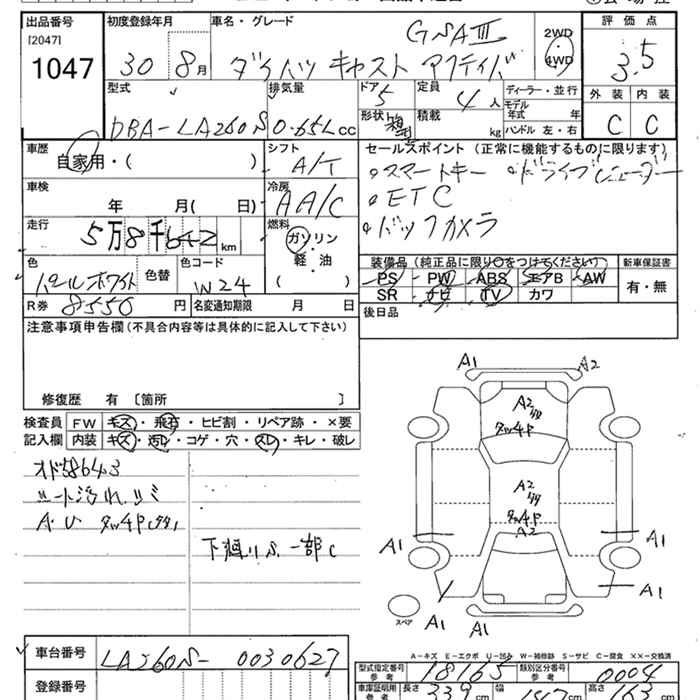 出品番号 初度登録年月 車名・グレード 評価点
[2047]
1047
30 8月
GSAⅢ
ダイハツ キャスト アクティバ
2WD
・
4WD
3.5
外装 内装
C C
型式 排気量 ドア 定員 ディーラー・並行
DBA-LA260S 0.65L cc
5 4人
モデル年式 年
形状 積載 kg ハンドル 左・右
車歴 シフト セールスポイント(正常に機能するものに限ります)
自家用・( ) A/T
・スマートキー ・ドライブレコーダー
車検 冷房
年 月( 日) AA/C
・ETC
走行 燃料
5万8千642km
ガソリン
・
軽・油
( )
・バックカメラ
色 色替 色コード
パールホワイト W24
装備品(純正品に限り○をつけてください) 新車保証書
PS PW ABS エアB AW
SR ナビ TV カワ
有・無
R券 8550円 名変通知期限 月 日
後日品
注意事項申告欄(不具合内容等は具体的に記入して下さい)
修復歴 有〔箇所 〕
検査員 FW キズ・飛石・ヒビ割・リペア跡・×要
記入欄 内装 キズ・汚レ・コゲ・穴・スレ・キレ・破レ
オド58643
シート汚れ
A.U タW4P
下廻りS 一部C
A1 A2
A2
タW4P
A2
タW4P
A2
A1 A1
A1
A1 A1
スペア
A-キズ E-エクボ U-凹み W-補修跡 S-サビ C-腐食 XX-交換済
車台番号 LA260S-0030627
登録番号
型式指定番号 参考 18165 類別区分番号 参考 0004
車庫証明用 参考 長さ 339cm 幅 147cm 高さ 163cm